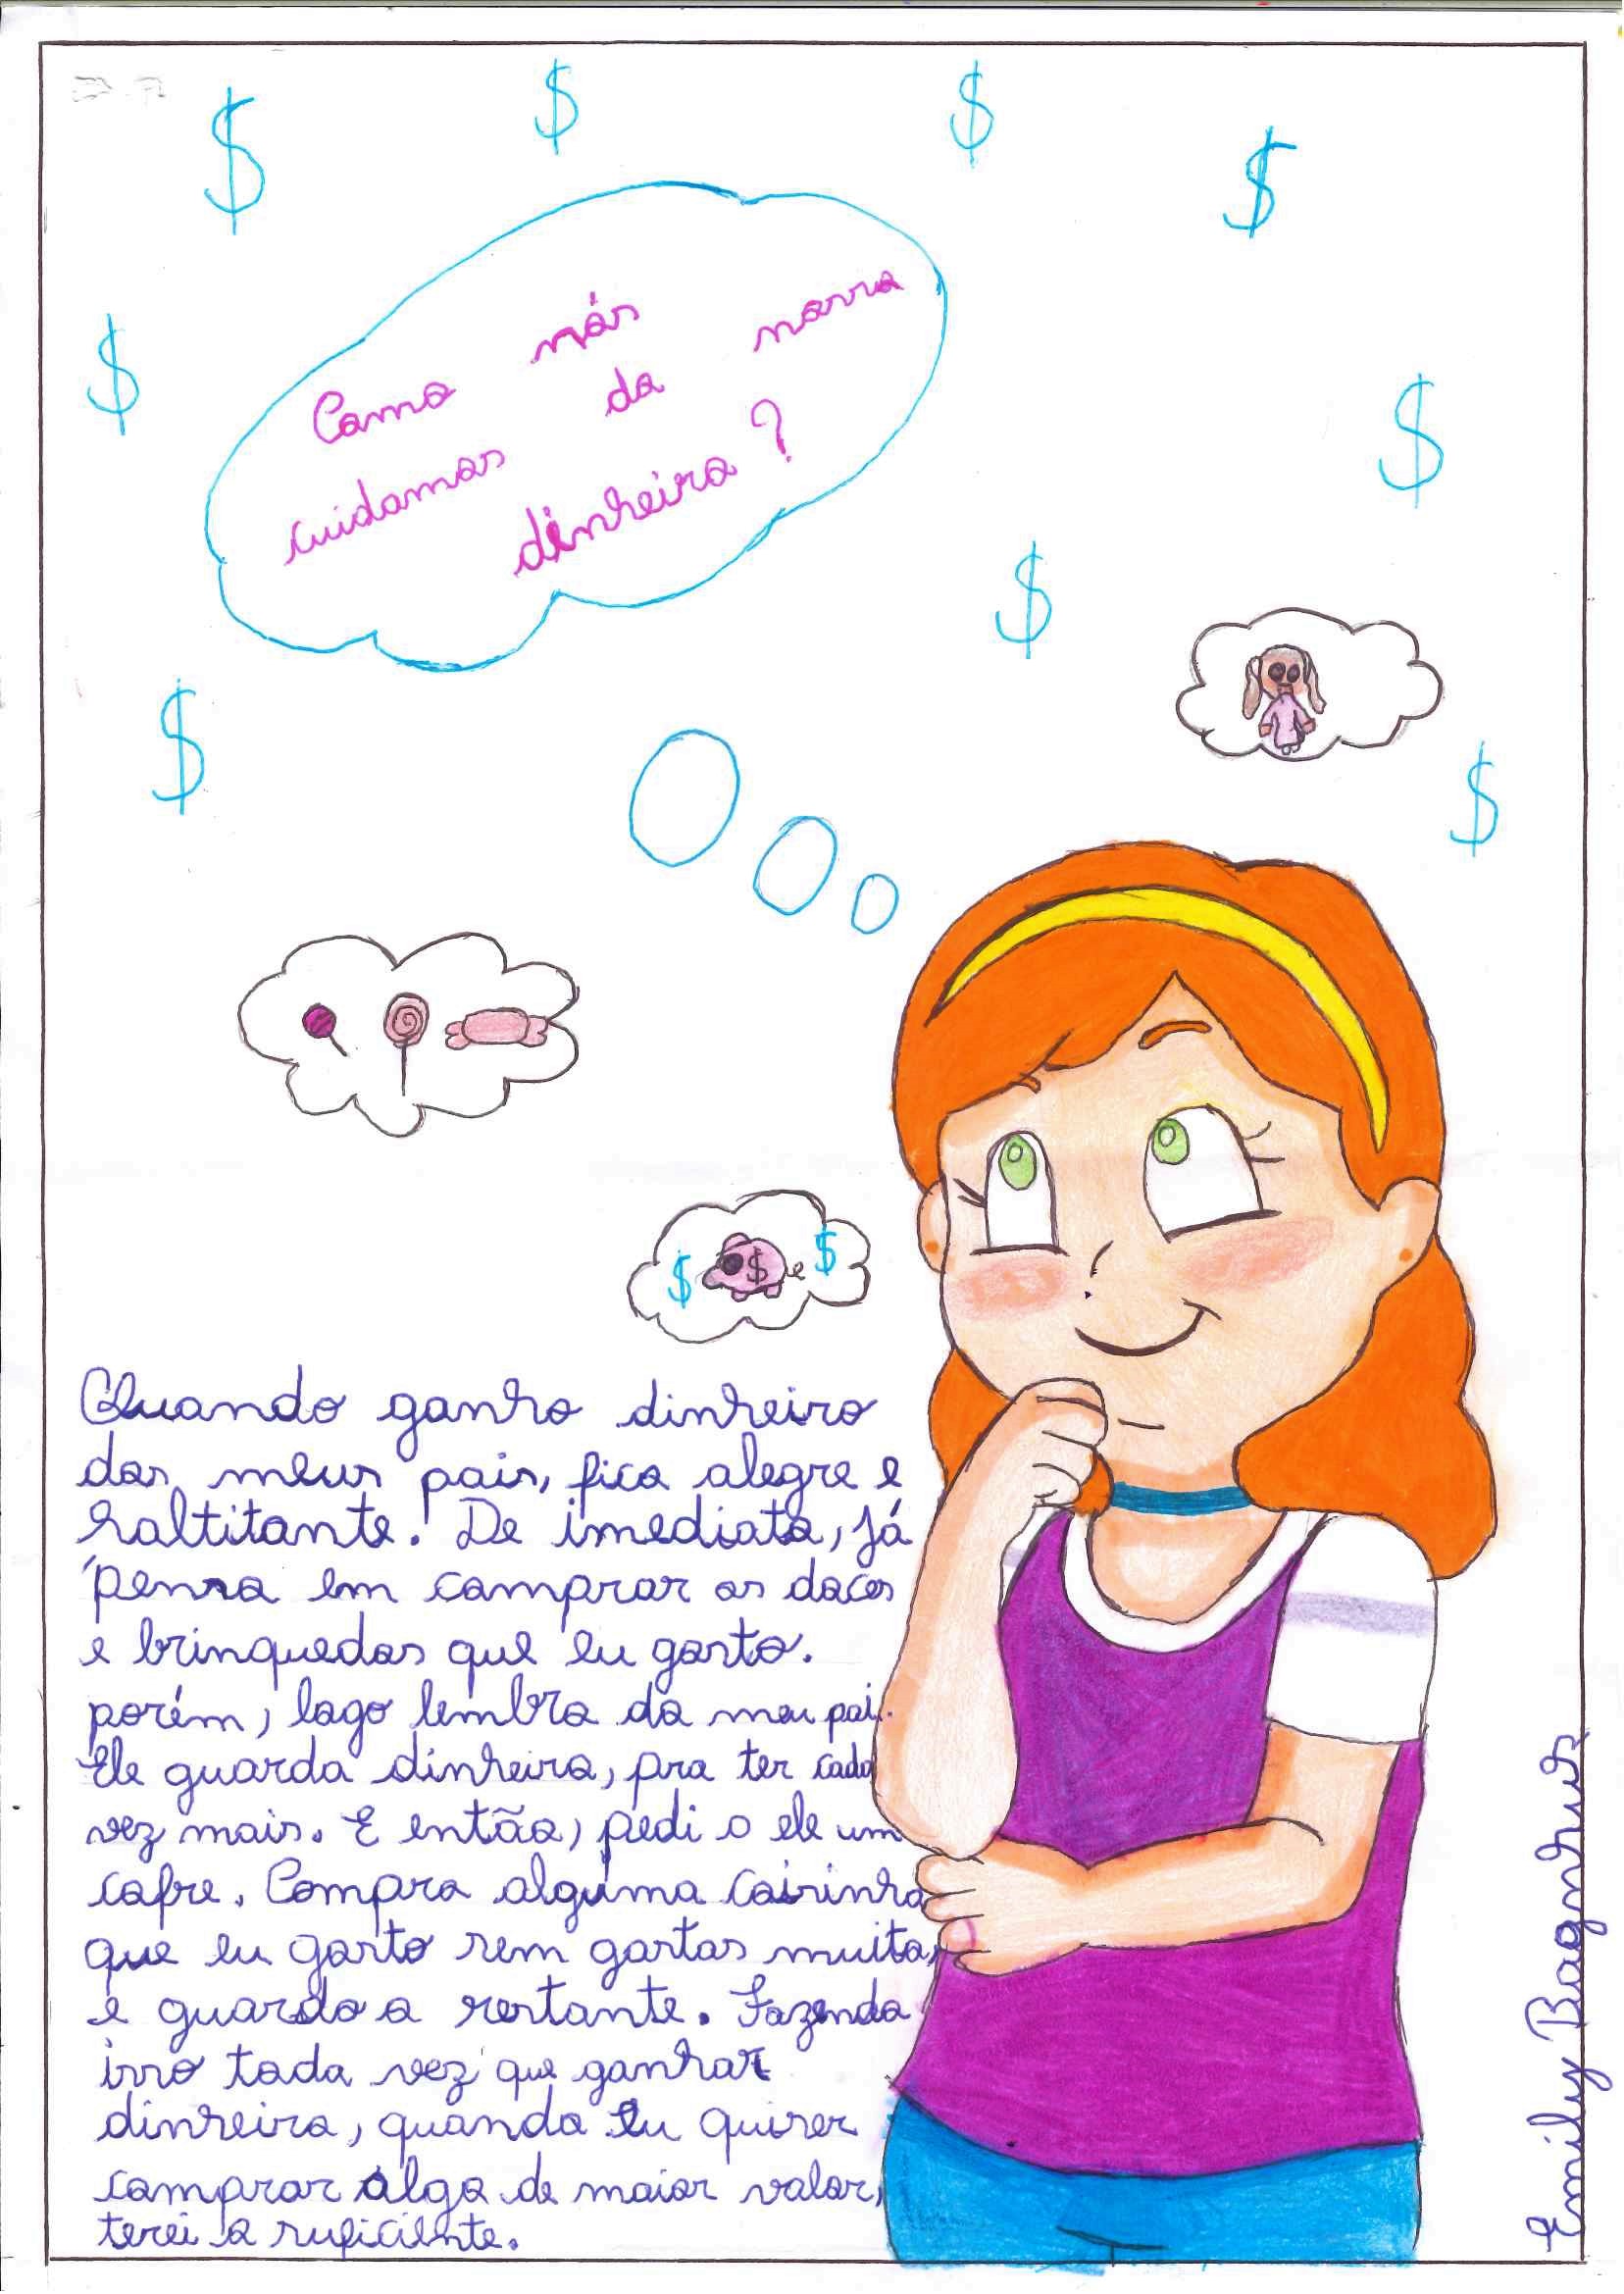 Como nós
cuidamos da nosso
dinheiro?
Quando ganho dinheiro
dos meus pais, fico alegre e
saltitante. De imediato, já
penso em comprar os doces
e brinquedos que eu gosto.
porém, logo lembro do meu pai.
Ele guarda dinheiro, pra ter cada
vez mais. E então, pedi a ele um
cofre. Compro alguma coisinha
que eu gosto sem gastar muito,
e guardo o restante. Fazendo
isso toda vez que ganhar
dinheiro, quando eu quiser
comprar algo de maior valor,
terei o suficiente.
Emily Bagnhus
$
$
$
$
$
$
$
$
$
$ $ $